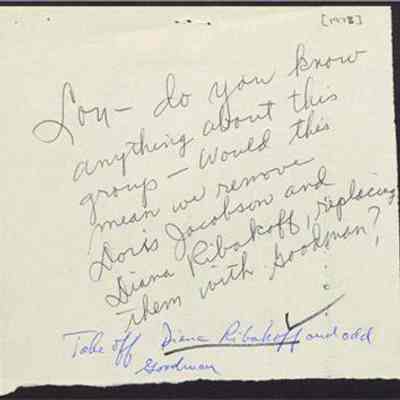 [1978]
Lou - do you know
anything about this
group - Would this
mean we remove
Doris Jacobson and
Diana Ribakoff, replacing
them with Goodman?
Take off Diana Ribakoff and add
Goodman